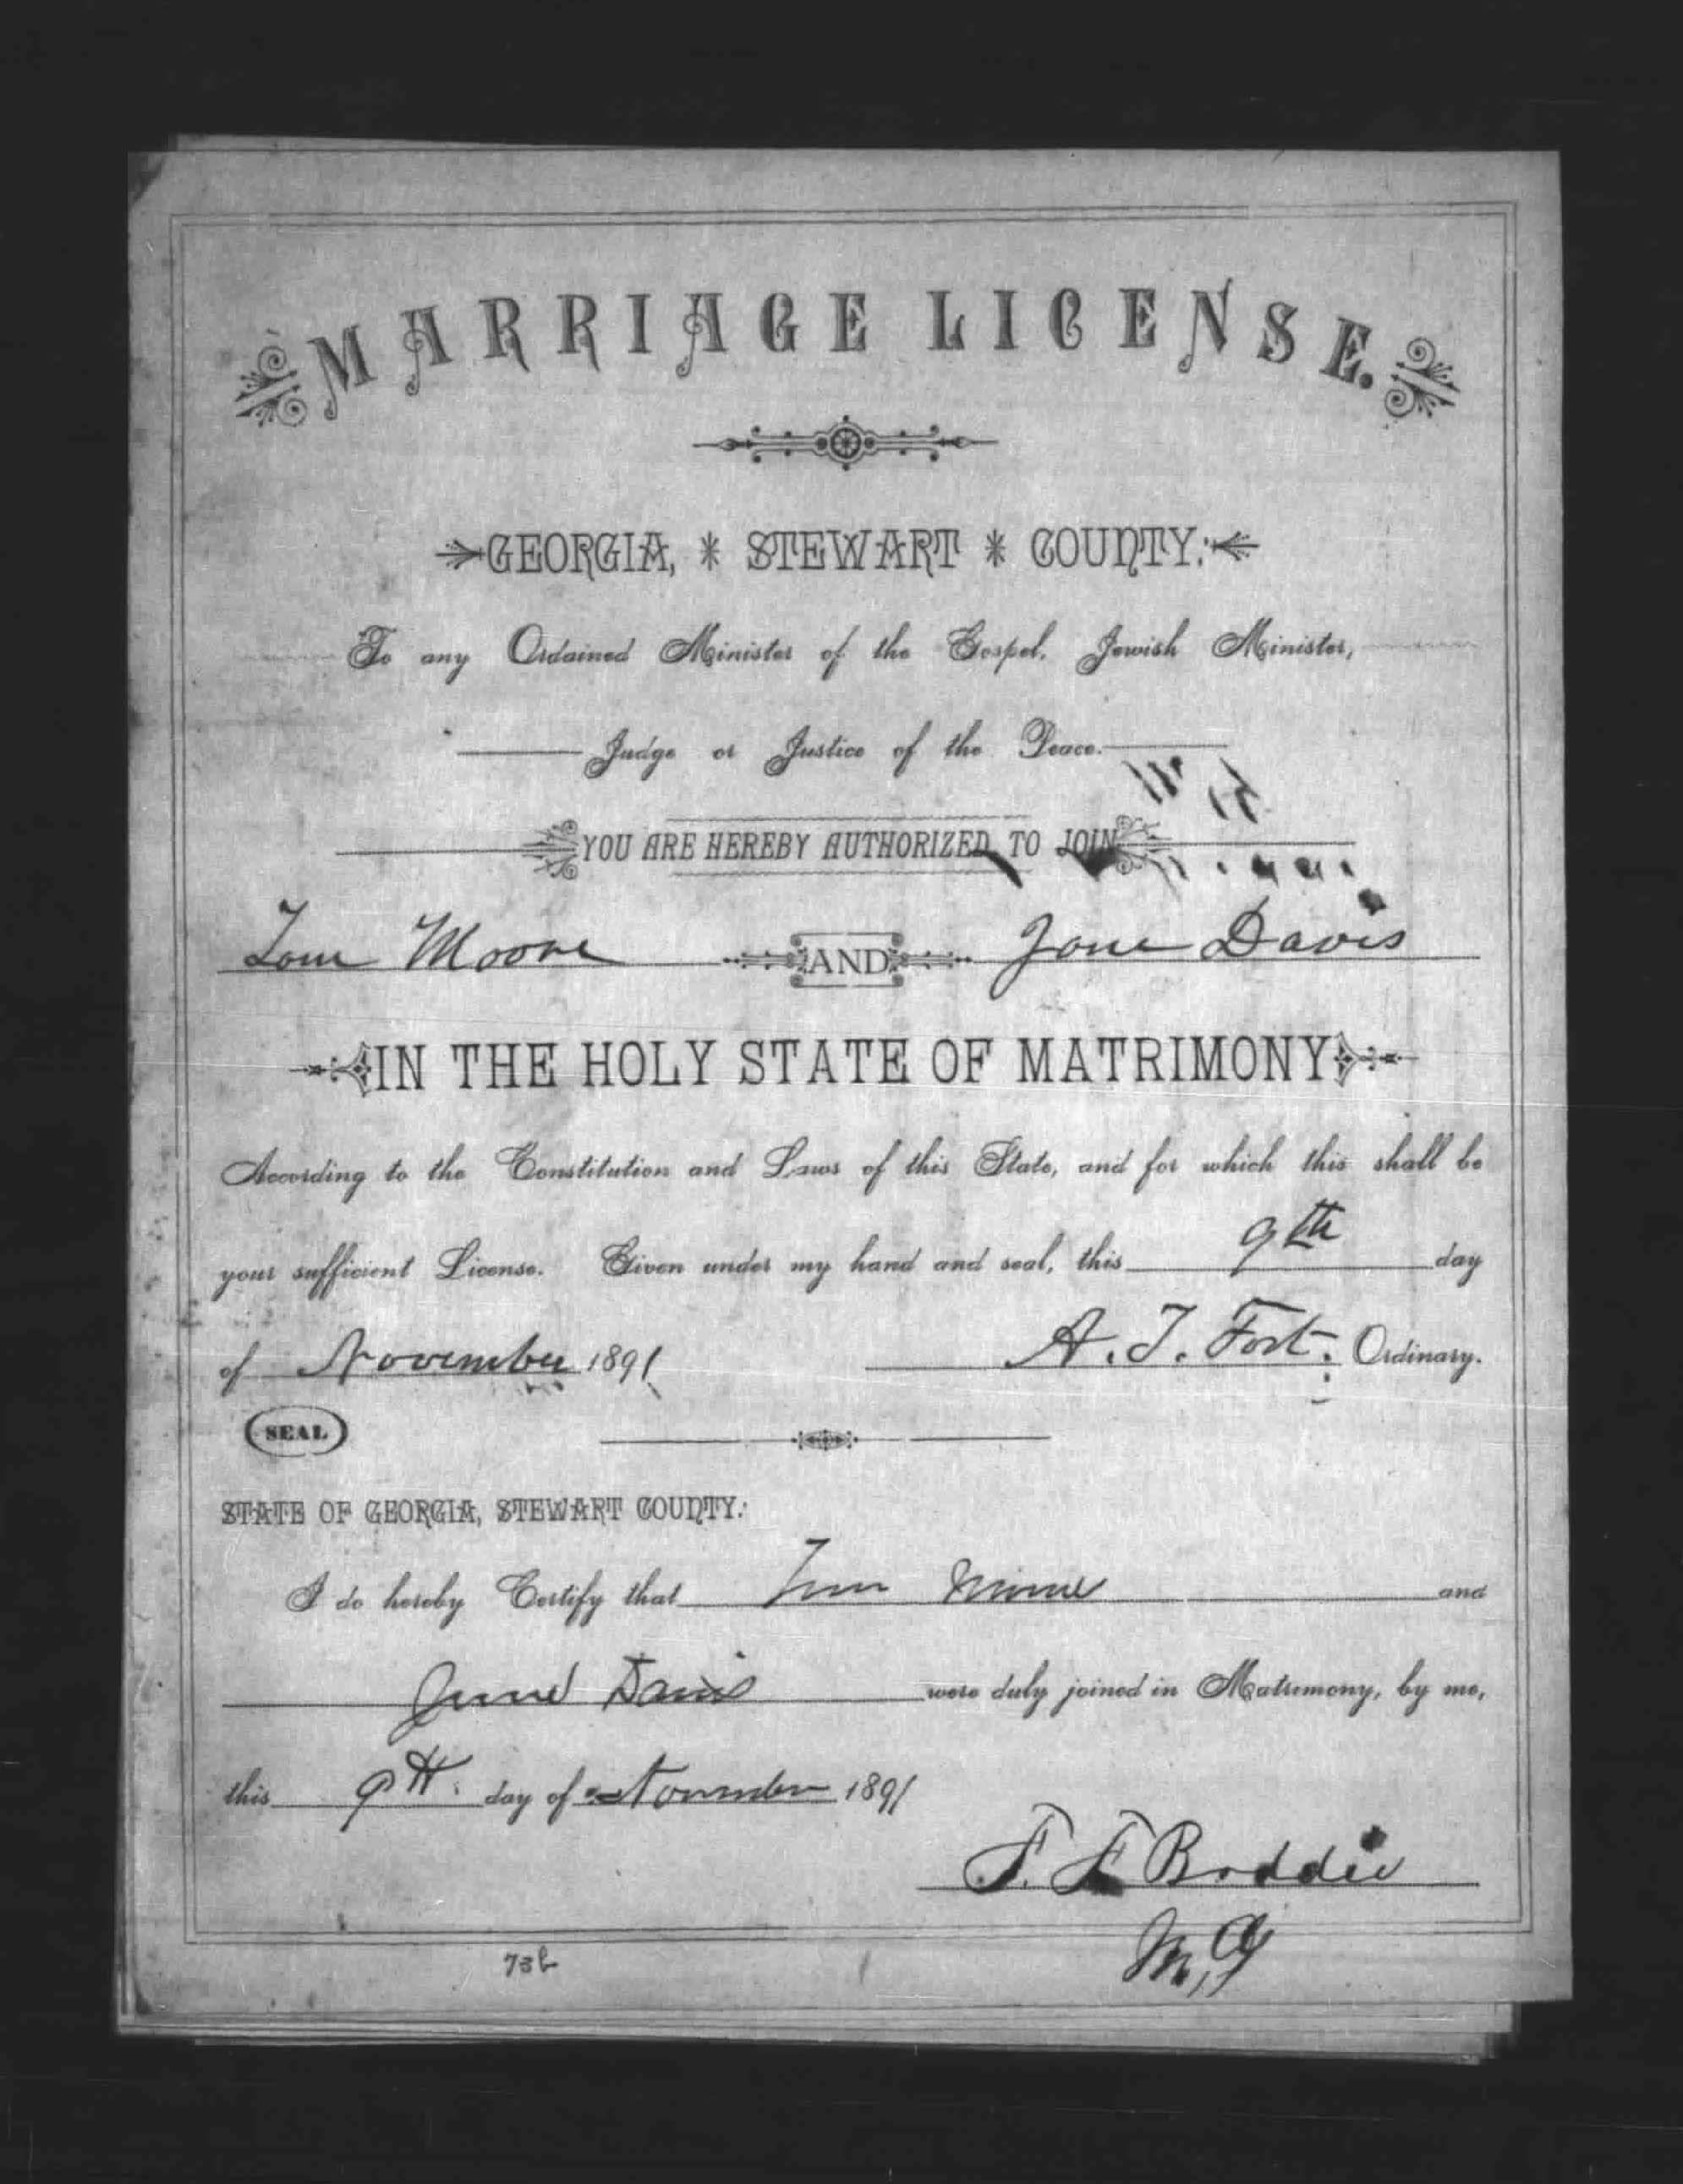 MARRIAGE LICENSE.
GEORGIA, * STEWART * COUNTY:
To any Ordained Minister of the Gospel, Jewish Minister,
Judge or Justice of the Peace.
YOU ARE HEREBY AUTHORIZED TO JOIN
Tom Moore AND Jane Davis
IN THE HOLY STATE OF MATRIMONY
According to the Constitution and Laws of this State, and for which this shall be
your sufficient License. Given under my hand and seal, this 9th day
of November 1891 A. T. Fort. Ordinary.
SEAL
STATE OF GEORGIA, STEWART COUNTY:
I do hereby Certify that Tom and
Davis were duly joined in Matrimony, by me,
this 9th. day of November 1891
Boddie
M, G